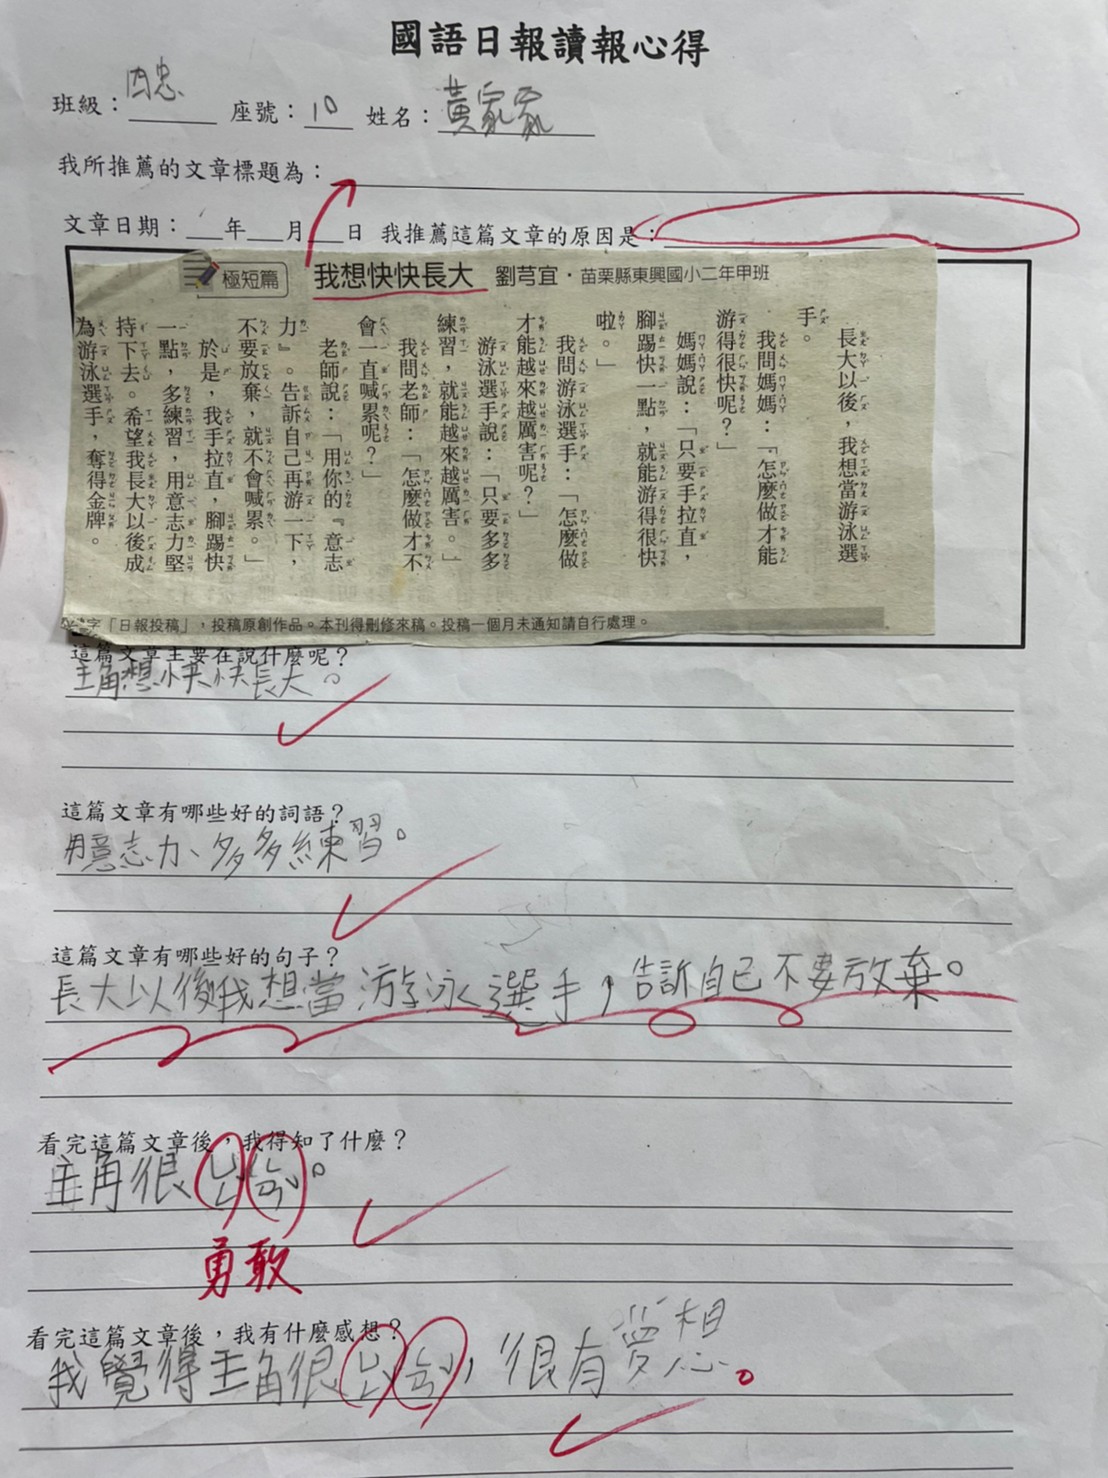 國語日報讀報心得
班級：內忠 座號：10 姓名：黃家家
我所推薦的文章標題為：
文章日期：＿年＿月＿日 我推薦這篇文章的原因是：
極短篇 我想快快長大 劉芎宜・苗栗縣東興國小二年甲班
長大以後，我想當游泳選
手。
我問媽媽：「怎麼做才能
游得很快呢？」
媽媽說：「只要手拉直，
腳踢快一點，就能游得很快
啦。」
我問游泳選手：「怎麼做
才能越來越厲害呢？」
游泳選手說：「只要多多
練習，就能越來越厲害。」
我問老師：「怎麼做才不
會一直喊累呢？」
老師說：「用你的『意志
力』。告訴自己再游一下，
不要放棄，就不會喊累。」
於是，我手拉直，腳踢快
一點，多練習，用意志力堅
持下去。希望我長大以後成
為游泳選手，奪得金牌。
字「日報投稿」，投稿原創作品。本刊得刪修來稿。投稿一個月未通知請自行處理。
這篇文章主要在說什麼呢？
主角想快快長大。
這篇文章有哪些好的詞語？
用意志力、多多練習。
這篇文章有哪些好的句子？
長大以後我想當游泳選手，告訴自己不要放棄。
看完這篇文章後，我得知了什麼？
主角很ㄩㄥˇㄍㄢˇ。
勇敢
看完這篇文章後，我有什麼感想？
我覺得主角很ㄩㄥˇㄍㄢˇ，很有夢想。